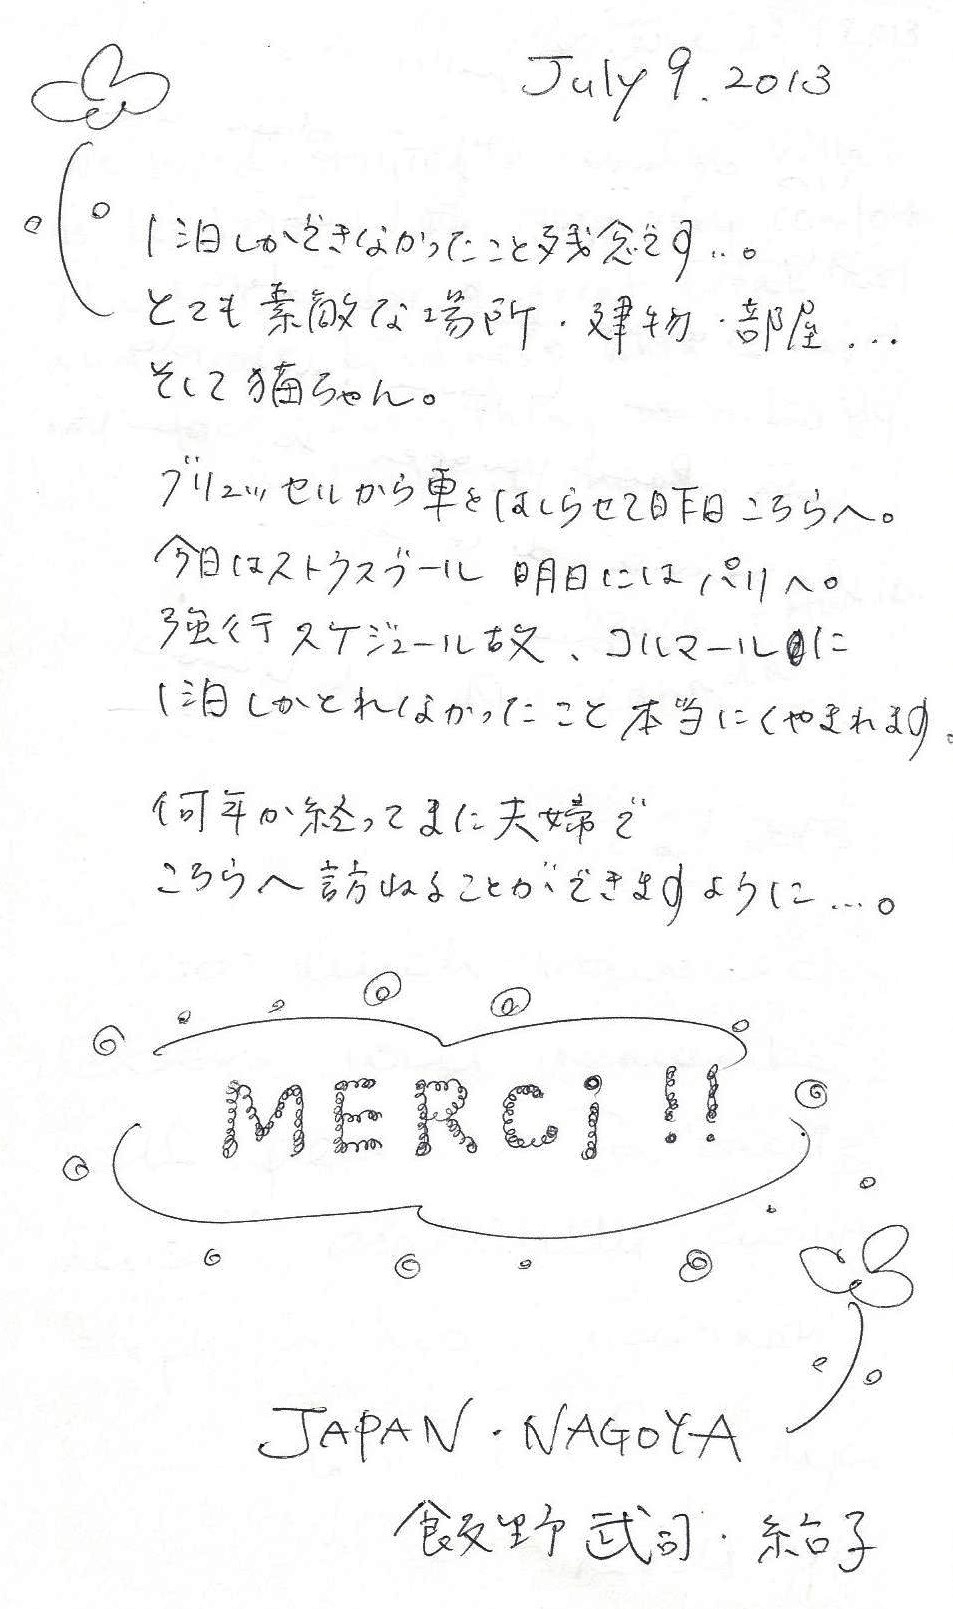 July 9. 2013
1泊しかできなかったこと残念です...。
とても素敵な場所・建物・部屋...
そして猫ちゃん。
ブリュッセルから車をはしらせて昨日こちらへ。
今日はストラスブール 明日にはパリへ。
強行スケジュール故、コルマールに
1泊しかとれなかったこと本当にくやまれます。
何年か経ってまた夫婦で
こちらへ訪ねることができますように...。
MERCi!!
JAPAN・NAGOYA
飯野武司・紿子